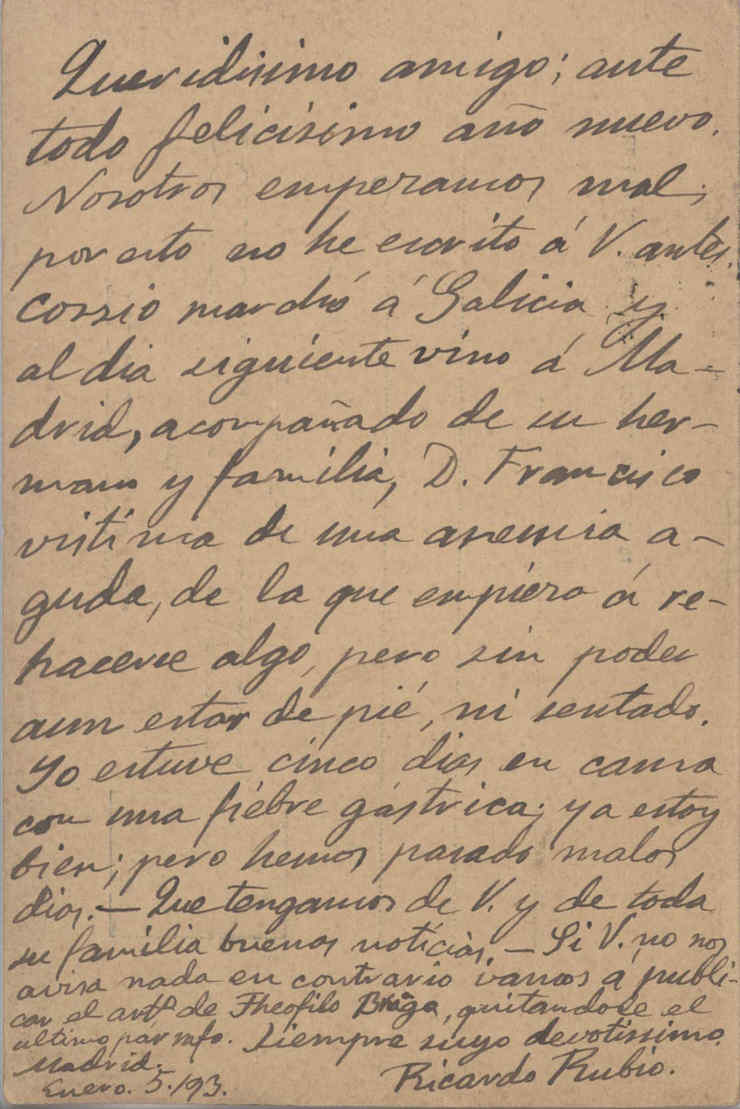 Queridisimo amigo; ante
todo felicísimo año nuevo.
Nosotros empezamos mal;
por esto no he escrito á V. antes.
Cossio marchó á Galicia y
al dia siguiente vino á Ma-
drid, acompañado de su her-
mano y familia, D. Francisco
victima de una anemia a-
guda, de la que empieza á re-
hacerse algo, pero sin poder
aun estar de pié, ni sentado.
Yo estuve cinco dias en cama
con una fiébre gástrica; ya estoy
bien; pero hemos pasado malos
dias. — Que tengamos de V. y de toda
su familia buenas noticias. — Si V. no nos
avisa nada en contrario vamos á publi-
car el artº de Theofilo Braga, quitandose el
ultimo parrafo. Siempre suyo devotissimo
Madrid. Ricardo Rubio.
Enero. 5. 193.